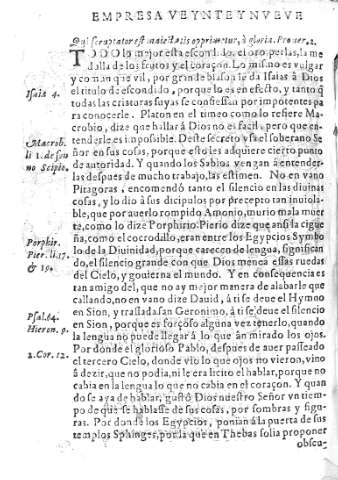 EMPRESA VEYNTEYNVEVE
Qui scrutator est maiestatis opprimetur, à gloria. Prouer. 2.
TODO lo mejor està escondido, el oro, perlas, la me
dalla de los frutos y el coraçon. Lo mismo es vulgar
y comun que vil, por grande blason le da Isaias à Dios
Isaia 4.
el titulo de escondido, porque lo es en efeto, y tanto q̃
todas las criaturas suyas se confiessan por impotentes pa
ra conocerle. Platon en el timeo como lo refiere Ma-
crobio, dize que hallar à Dios no es facil, pero que en-
Macrob.
tenderle es impossible. Deste secreto vsa el soberano Se
li 1. de som
ñor en sus cosas, porque esto les adquiere cierto punto
no Scipio.
de autoridad. Y quando los Sabios vengan à entender-
las despues de mucho trabajo, las estimen. No en vano
Pitagoras, encomendò tanto el silencio en las diuinas
cosas, y lo dio à sus dicipulos por precepto tan inuiola-
ble, que por auerlo rompido Amonio, murio mala muer
te, como lo dize Porphirio. Pierio dize que ansi la cigue
Porphir.
ña, como el cocrodillo, eran entre los Egypcios Symbo
Pier. li. 17.
lo de la Diuinidad, por que carecen de lengua, significan
& 29.
do, el silencio grande con que Dios menea essas ruedas
del Cielo, y gouierna el mundo. Y en consequencia es
tan amigo del, que no ay mejor manera de alabarle que
callando, no en vano dize Dauid, A ti se deue el Hymno
Psal. 64.
en Sion, y traslada san Geronimo, à ti se deue el silencio
Hieron. 9.
en Sion, porque es forçoso alguna vez tenerlo, quando
la lengua no puede llegar à lo que án mirado los ojos.
Por donde el glorioso Pablo, despues de auer passeado
2. Cor. 12.
el tercero Cielo, donde vio lo que ojos no vieron, vino
à dezir, que no podia, ni le era licito el hablar, porque no
cabia en la lengua lo que no cabia en el coraçon. Y quan
do se aya de hablar, gustò Dios nuestro Señor vn tiem-
po de que se hablasse de sus cosas, por sombras y figu-
ras. Por donde los Egypcios, ponian à la puerta de sus
templos Sphinges, por la que en Thebas solia proponer
obscu-